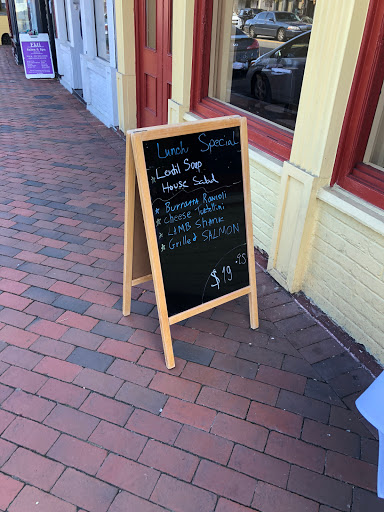 Lunch Special
* Lentil Soup
House Salad
* Burratta Ravioli
* Cheese Tortellini
* LAMB Shank
* Grilled SALMON
$19.95